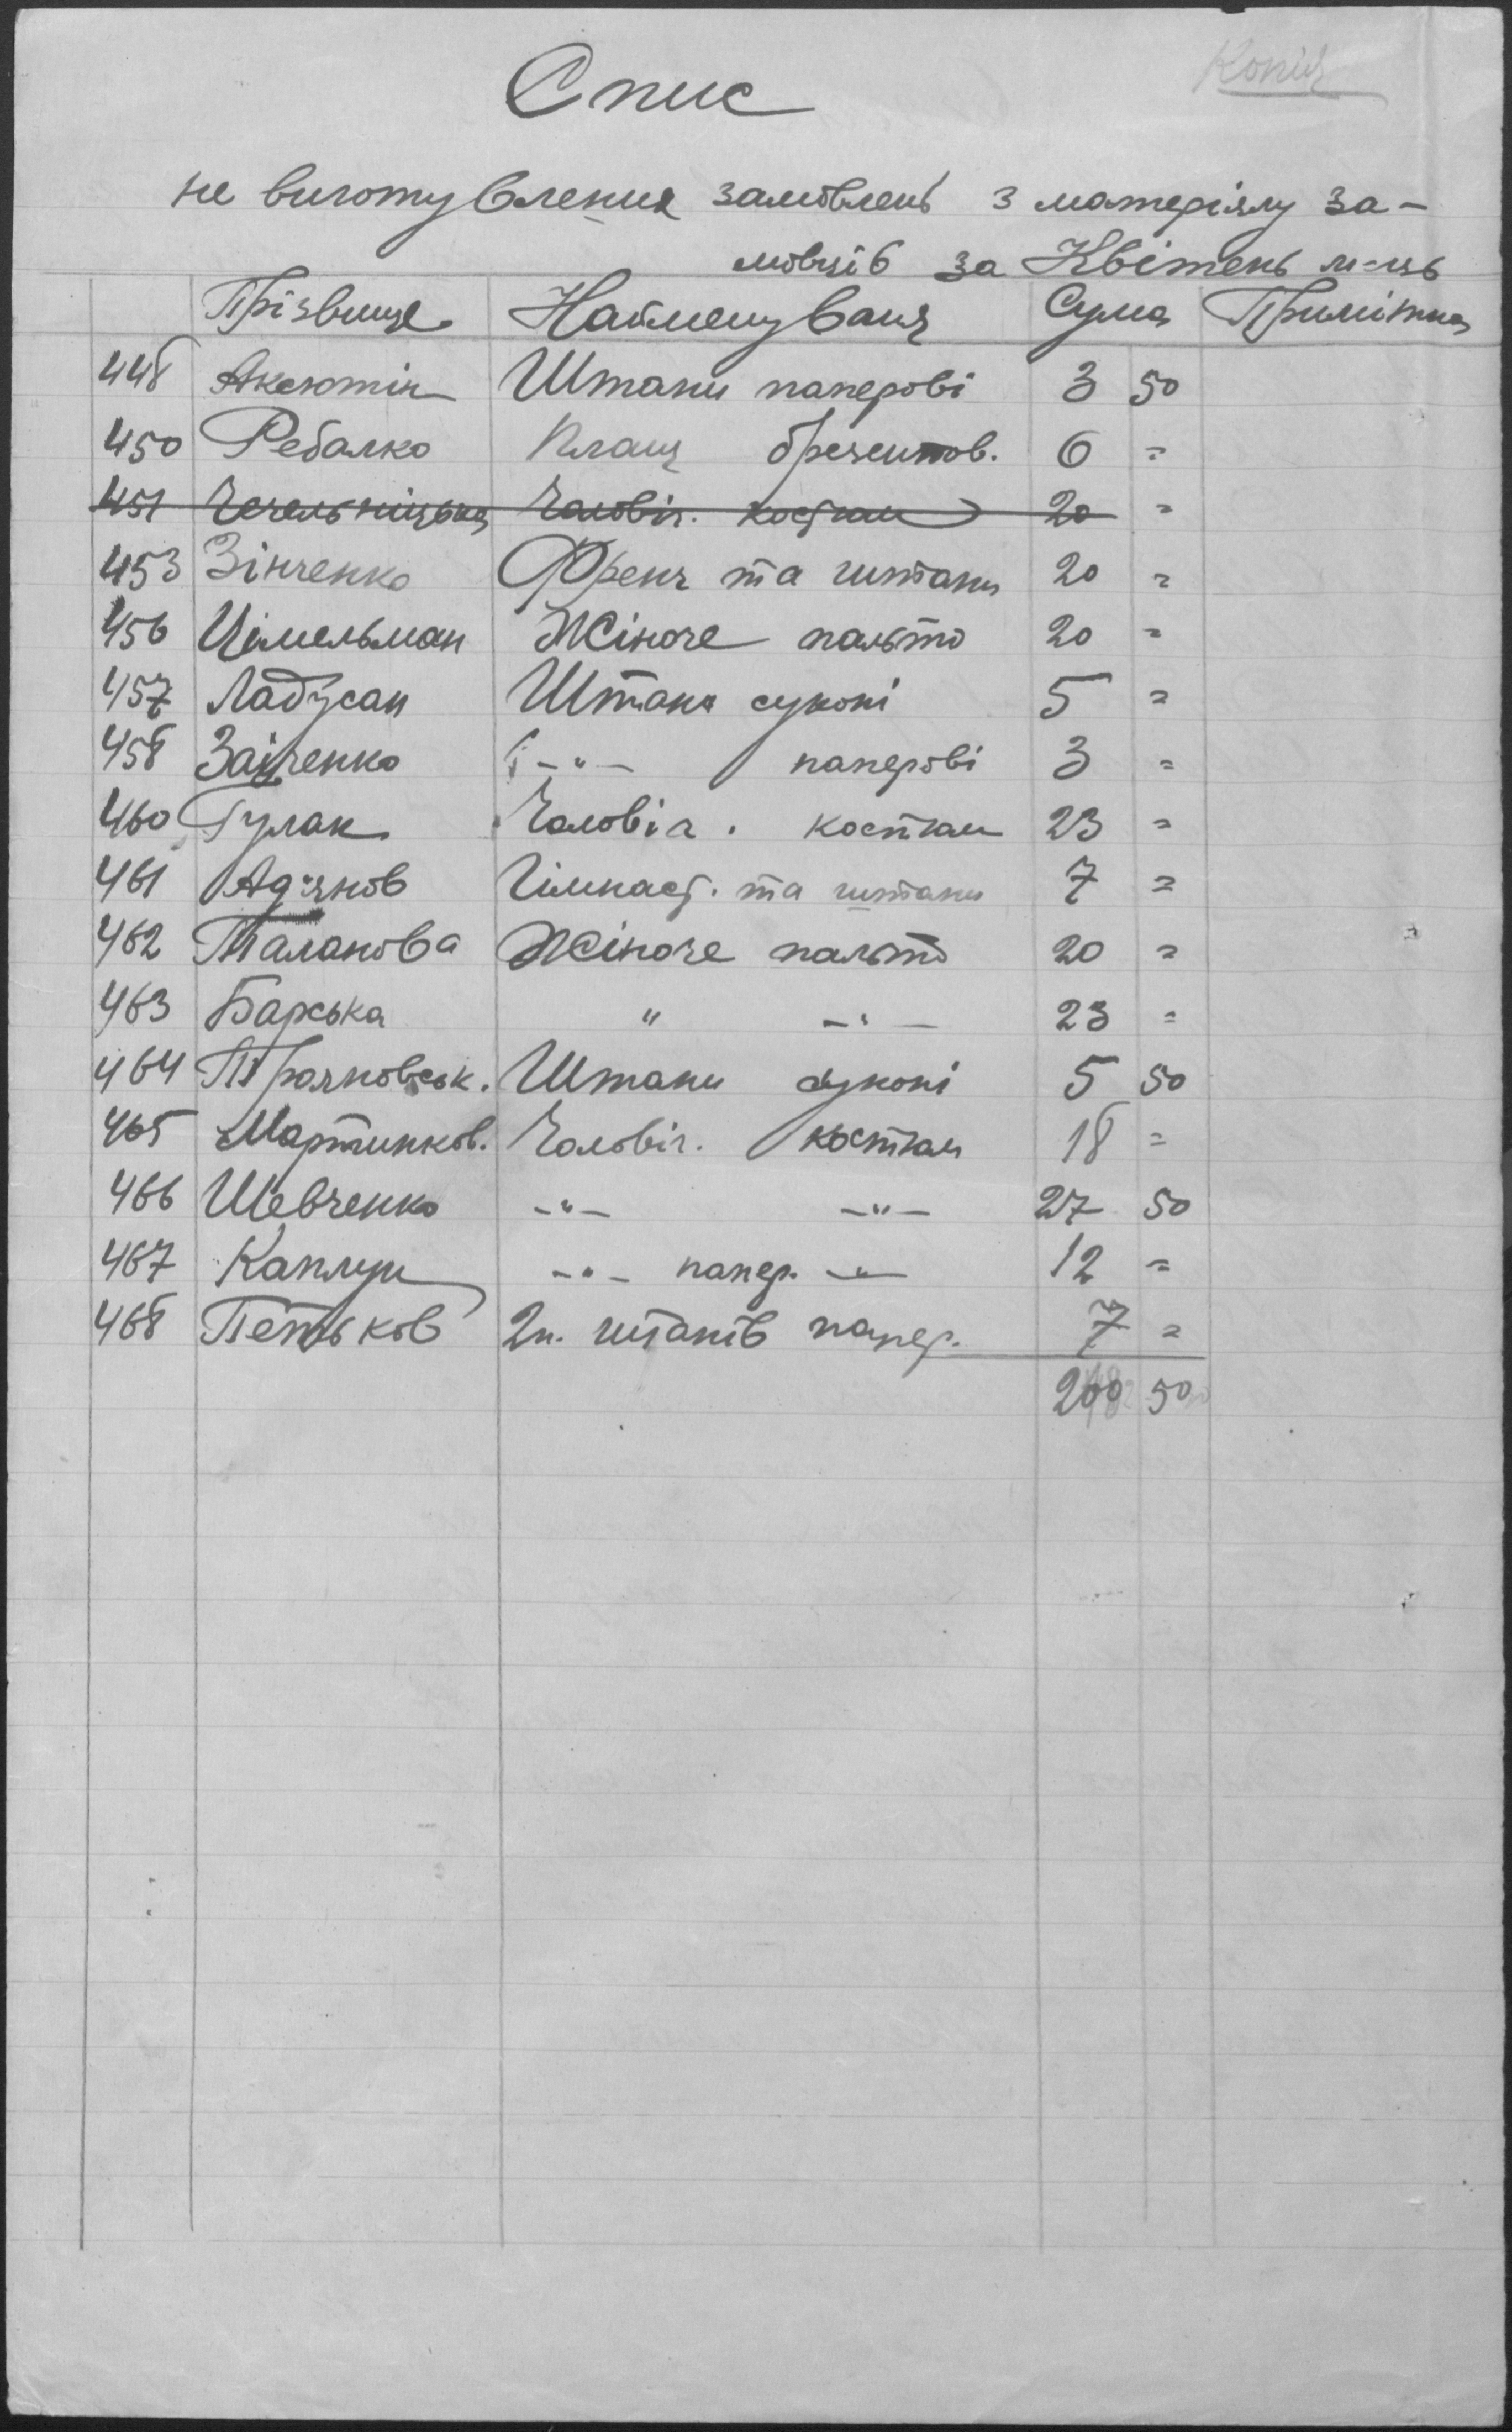 Копія
Спис
не виготувления замовлень з матеріялу за-
мовців за Квітень м-ць
Прізвище Найменуваня Сума Примітка
448 Аксютін Штани паперові 3 50
450 Ребалко Плащ брезентов. 6 =
451 Чечельницька Чоловіч. костюм 20 =
453 Зінченко Френч та штани 20 =
456 Цімельман Жіноче пальто 20 =
457 Ладусан Штани суконі 5 =
458 Заіченко -"- паперові 3 =
460 Гулак Чоловіч. костюм 23 =
461 Гімнаст. та штани 7 =
462 Таланова Жіноче пальто 20 =
463 Барська " -"- 23 =
464 Трояновськ. Штани суконі 5 50
465 Мартинков. Чоловіч. костюм 18 =
466 Шевченко -"- -"- 27 50
467 Каплун -"- папер. -"- 12 =
468 Петьков 2 п. штанів папер. 7 =
200 50